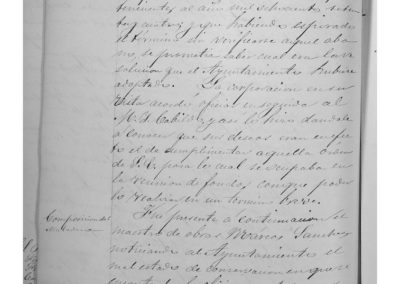 tinientes al año mil ochocientos setenta
ta y cuatro y que habiendo espirado
el término sin verificarse aquel abo-
no, se prometia saber cual era la re-
solucion que el Ayuntamiento hubiere
adoptado. La corporacion en su
vista acordó oficiar en seguida al
M. I. Cabildo, y así lo hizo dandole
á conocer que sus deseos eran en efec-
to el de cumplimentar aquella órden
de S. E. para lo cual se ocupaba en
la reunion de fondos con que poder
lo realizar en un término breve.
Composicion del
Fué presente á continuacion el
maestro de obras Márcos Sanchez
noticiando al Ayuntamiento el
mal estado de conservacion en que se